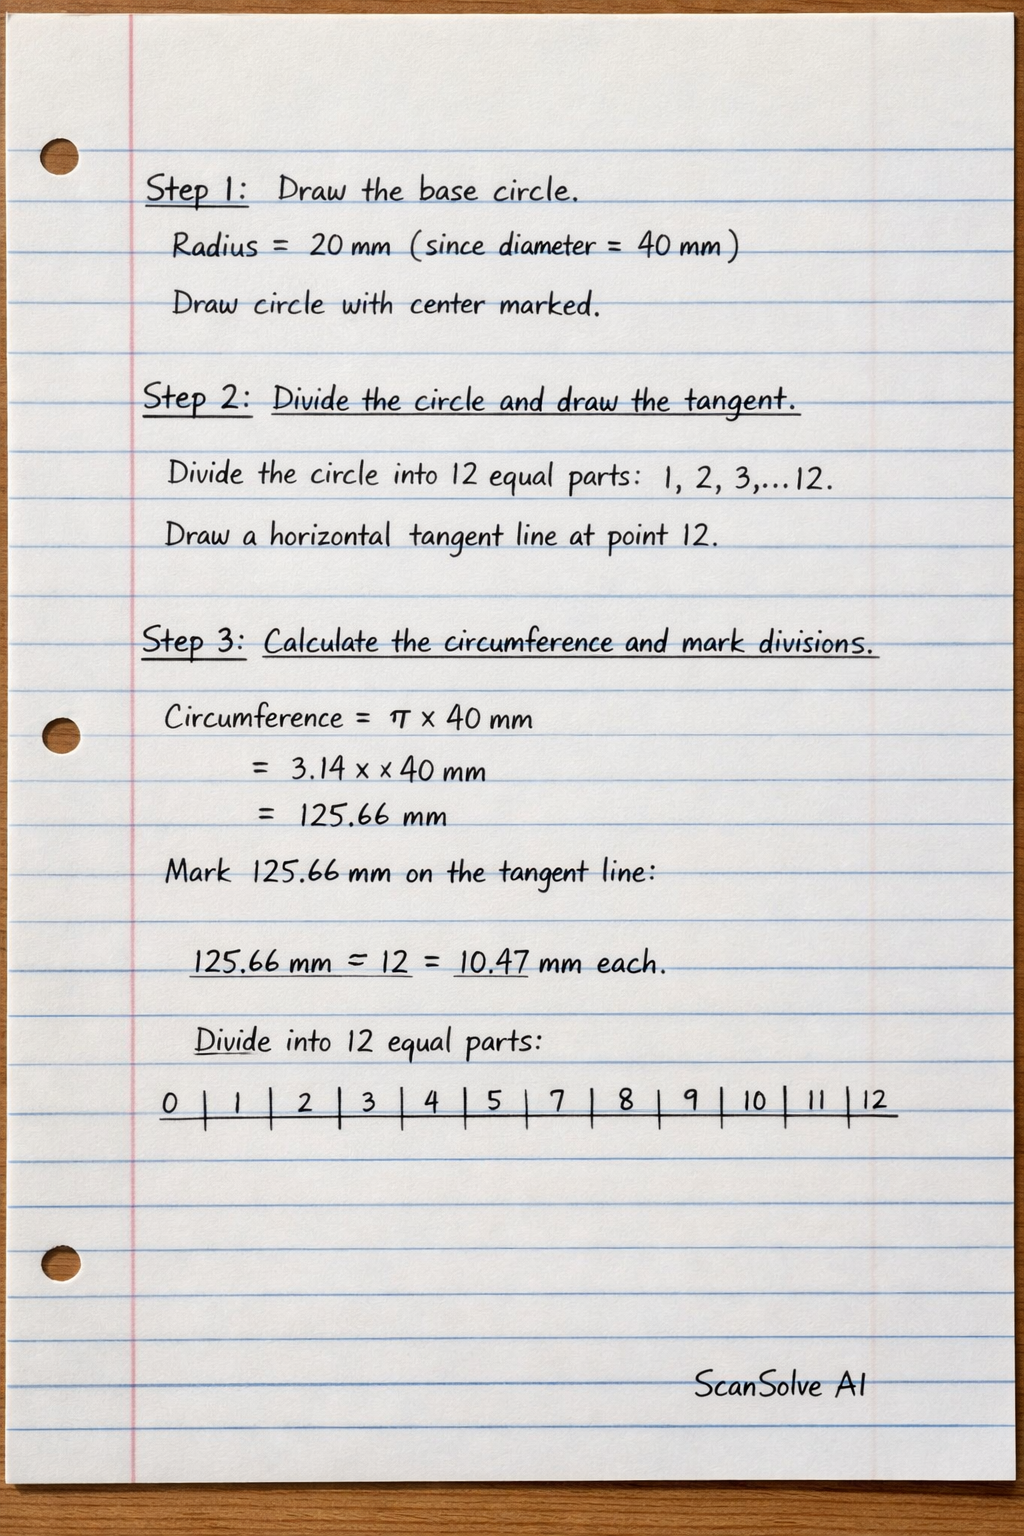 Step 1: Draw the base circle.
Radius = 20 mm (since diameter = 40 mm)
Draw circle with center marked.
Step 2: Divide the circle and draw the tangent.
Divide the circle into 12 equal parts: 1, 2, 3,...12.
Draw a horizontal tangent line at point 12.
Step 3: Calculate the circumference and mark divisions.
Circumference = π × 40 mm
= 3.14 × × 40 mm
= 125.66 mm
Mark 125.66 mm on the tangent line:
125.66 mm = 12 = 10.47 mm each.
Divide into 12 equal parts:
0 | 1 | 2 | 3 | 4 | 5 | 7 | 8 | 9 | 10 | 11 | 12
ScanSolve AI